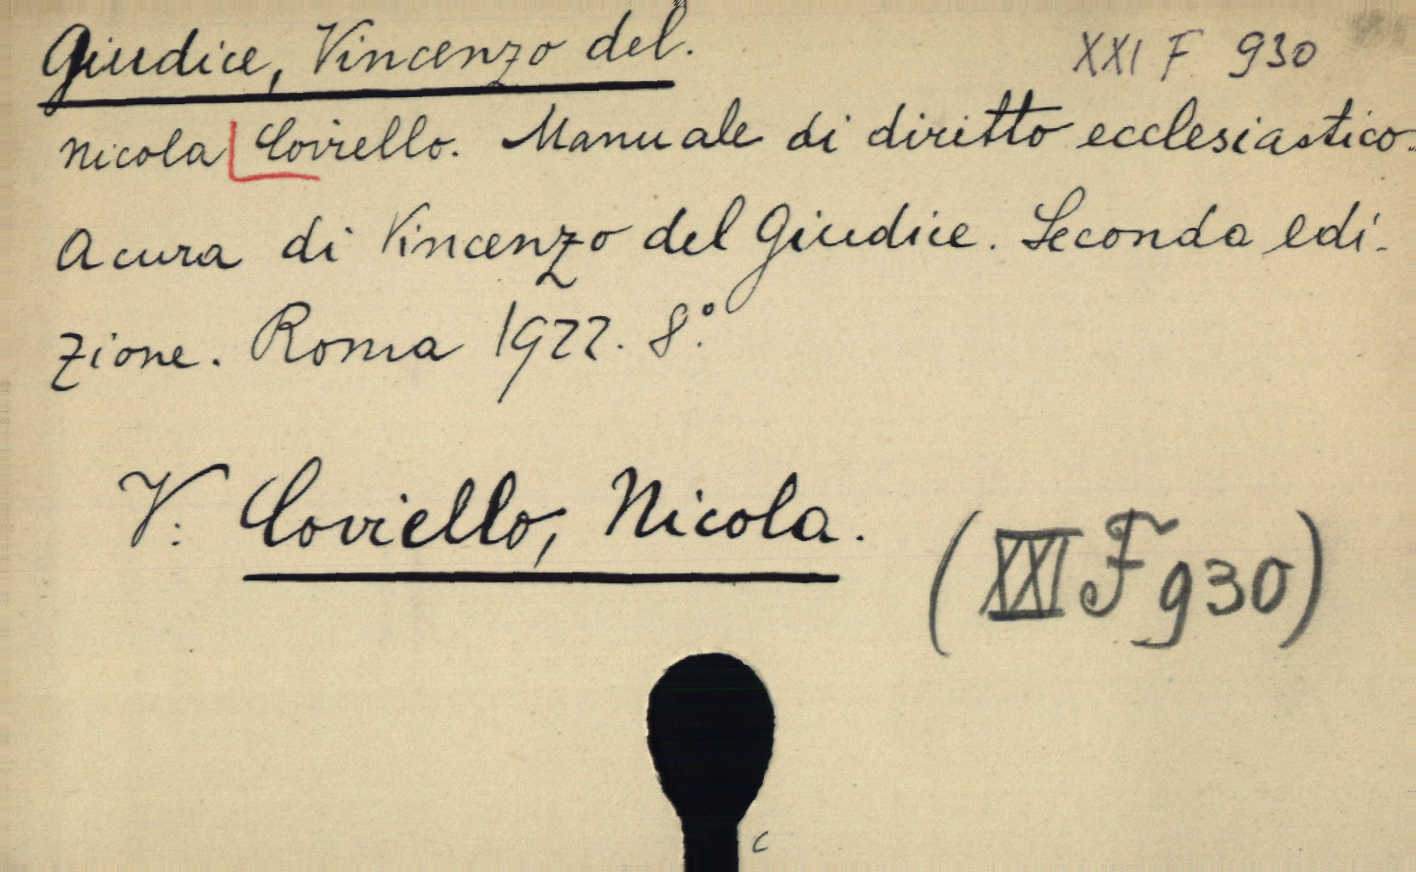 Giudice, Vincenzo del.
XXI F 930
Nicola Coviello. Manuale di diritto ecclesiastico.
A cura di Vincenzo del Giudice. Seconda edi-
zione. Roma 1922. 8.°
V: Coviello, Nicola.
(XXI F 930)
c